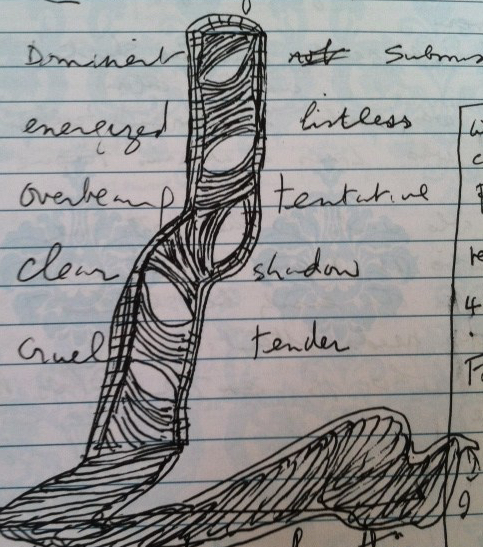 Dominent not Submiss
energized listless
Overbearing tentative
Clear shadow
Cruel tender
4